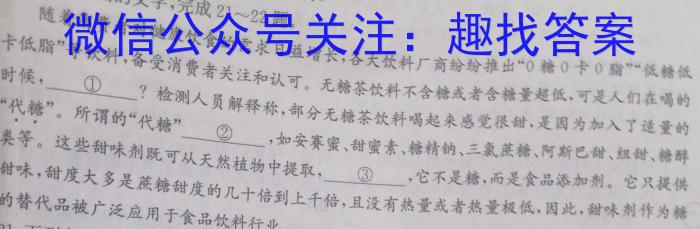 的文字,完成21～22题。
随着
微信公众号关注：趣找答案
需求日益增长,各大饮料厂商纷纷推出“0糖0卡0脂”“低糖低
卡低脂” 饮料,备受消费者关注和认可。无糖茶饮料不含糖或者含糖量超低,可是人们在喝的
时候, ① ?检测人员解释称,部分无糖茶饮料喝起来感觉很甜,是因为加入了适量的
“代糖”。所谓的“代糖” ② ,如安赛蜜、甜蜜素、糖精钠、三氯蔗糖、阿斯巴甜、纽甜、糖醇
类等。这些甜味剂既可从天然植物中提取, ③ ,它不是糖,而是食品添加剂。它只提供
甜味,甜度大多是蔗糖甜度的几十倍到上千倍,且没有热量或者热量极低,因此,甜味剂作为糖
的替代品被广泛应用于食品饮料行业